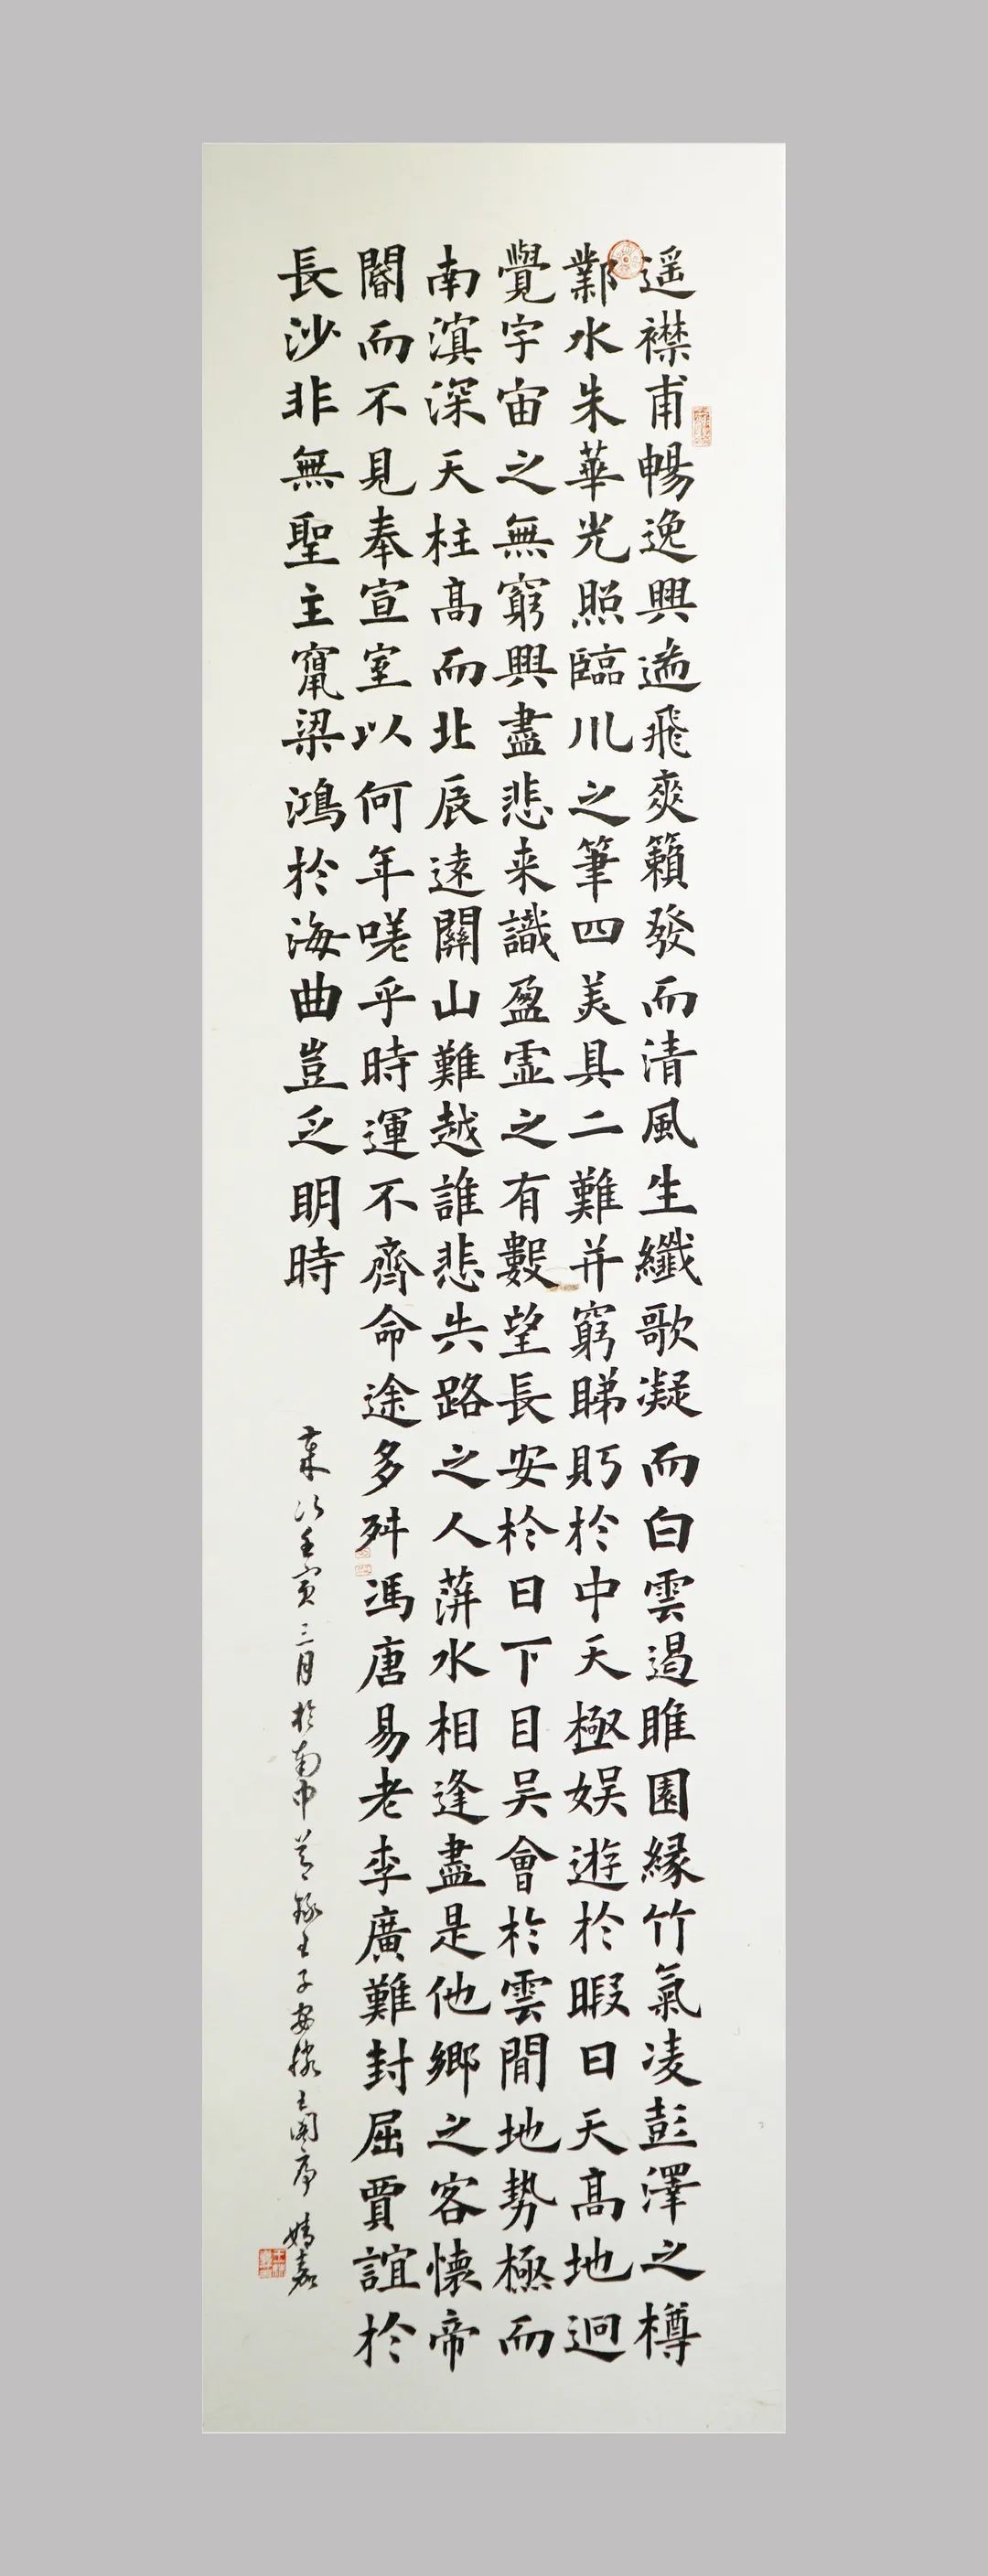 遥襟甫暢逸興遄飛爽籟發而清風生纖歌凝而白雲遏睢園緑竹氣凌彭澤之樽
鄴水朱華光照臨川之筆四美具二難并窮睇眄於中天極娱遊於暇日天高地迥
覺宇宙之無窮興盡悲来識盈虚之有數望長安於日下目吴會於雲間地勢極而
南溟深天柱高而北辰遠關山難越誰悲失路之人萍水相逢盡是他鄉之客懷帝
閽而不見奉宣室以何年嗟乎時運不齊命途多舛馮唐易老李廣難封屈賈誼於
長沙非無聖主竄梁鴻於海曲豈乏明時
歲次壬寅三月於南中 錄王子安滕王閣序 婧嘉